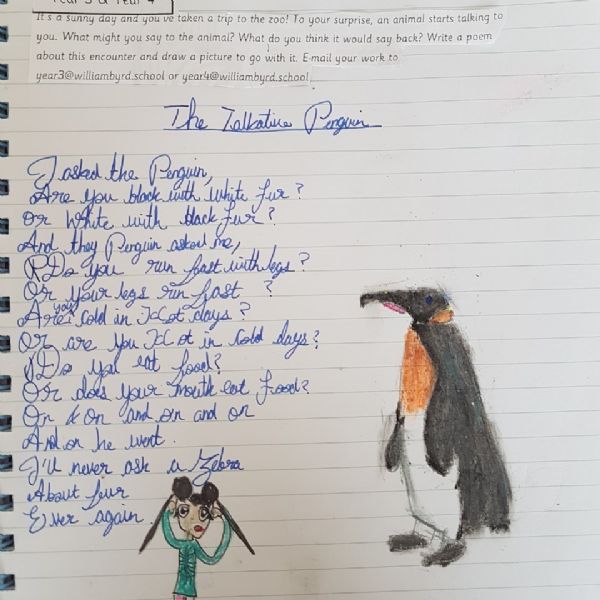 Year 3 & Year 4
It's a sunny day and you've taken a trip to the zoo! To your surprise, an animal starts talking to
you. What might you say to the animal? What do you think it would say back? Write a poem
about this encounter and draw a picture to go with it. E-mail your work to
year3@williambyrd.school or year4@williambyrd.school
The Talkative Penguin
I asked the Penguin,
Are you black with white fur?
Or White with black fur?
And they Penguin asked me,
Do you run fast with legs?
Or your legs run fast ?
Are you cold in Hot days?
Or are you Hot in Cold days?
Do you eat food?
Or does your mouth eat food?
On & On and on and on
And on he went.
I'll never ask a Zebra
About fur
Ever again.